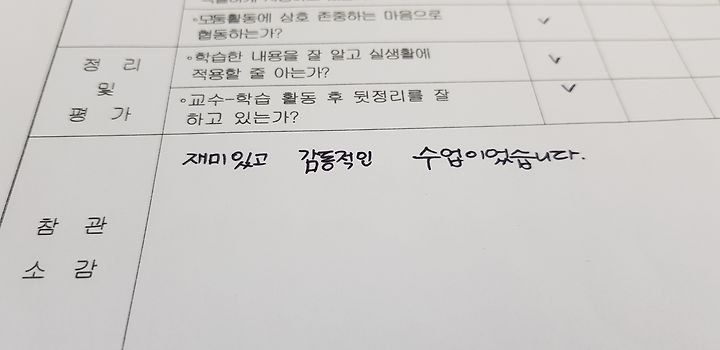 ◦모둠활동에 상호 존중하는 마음으로
협동하는가?
정 리
및
평 가
◦학습한 내용을 잘 알고 실생활에
적용할 줄 아는가?
◦교수-학습 활동 후 뒷정리를 잘
하고 있는가?
참 관
소 감
재미있고 감동적인 수업이었습니다.